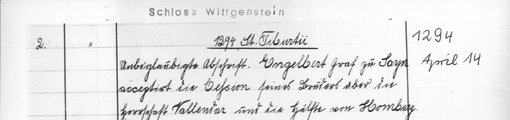 Schloss Wittgenstein
2. " 1294 St. Tiburtii 1294
Unbeglaubigte Abschrift. Engelbert Graf zu Sayn April 14
acceptirt die Cession seines Bruders über die
Herrschaft Vallendar und die Hälfte von Homburg